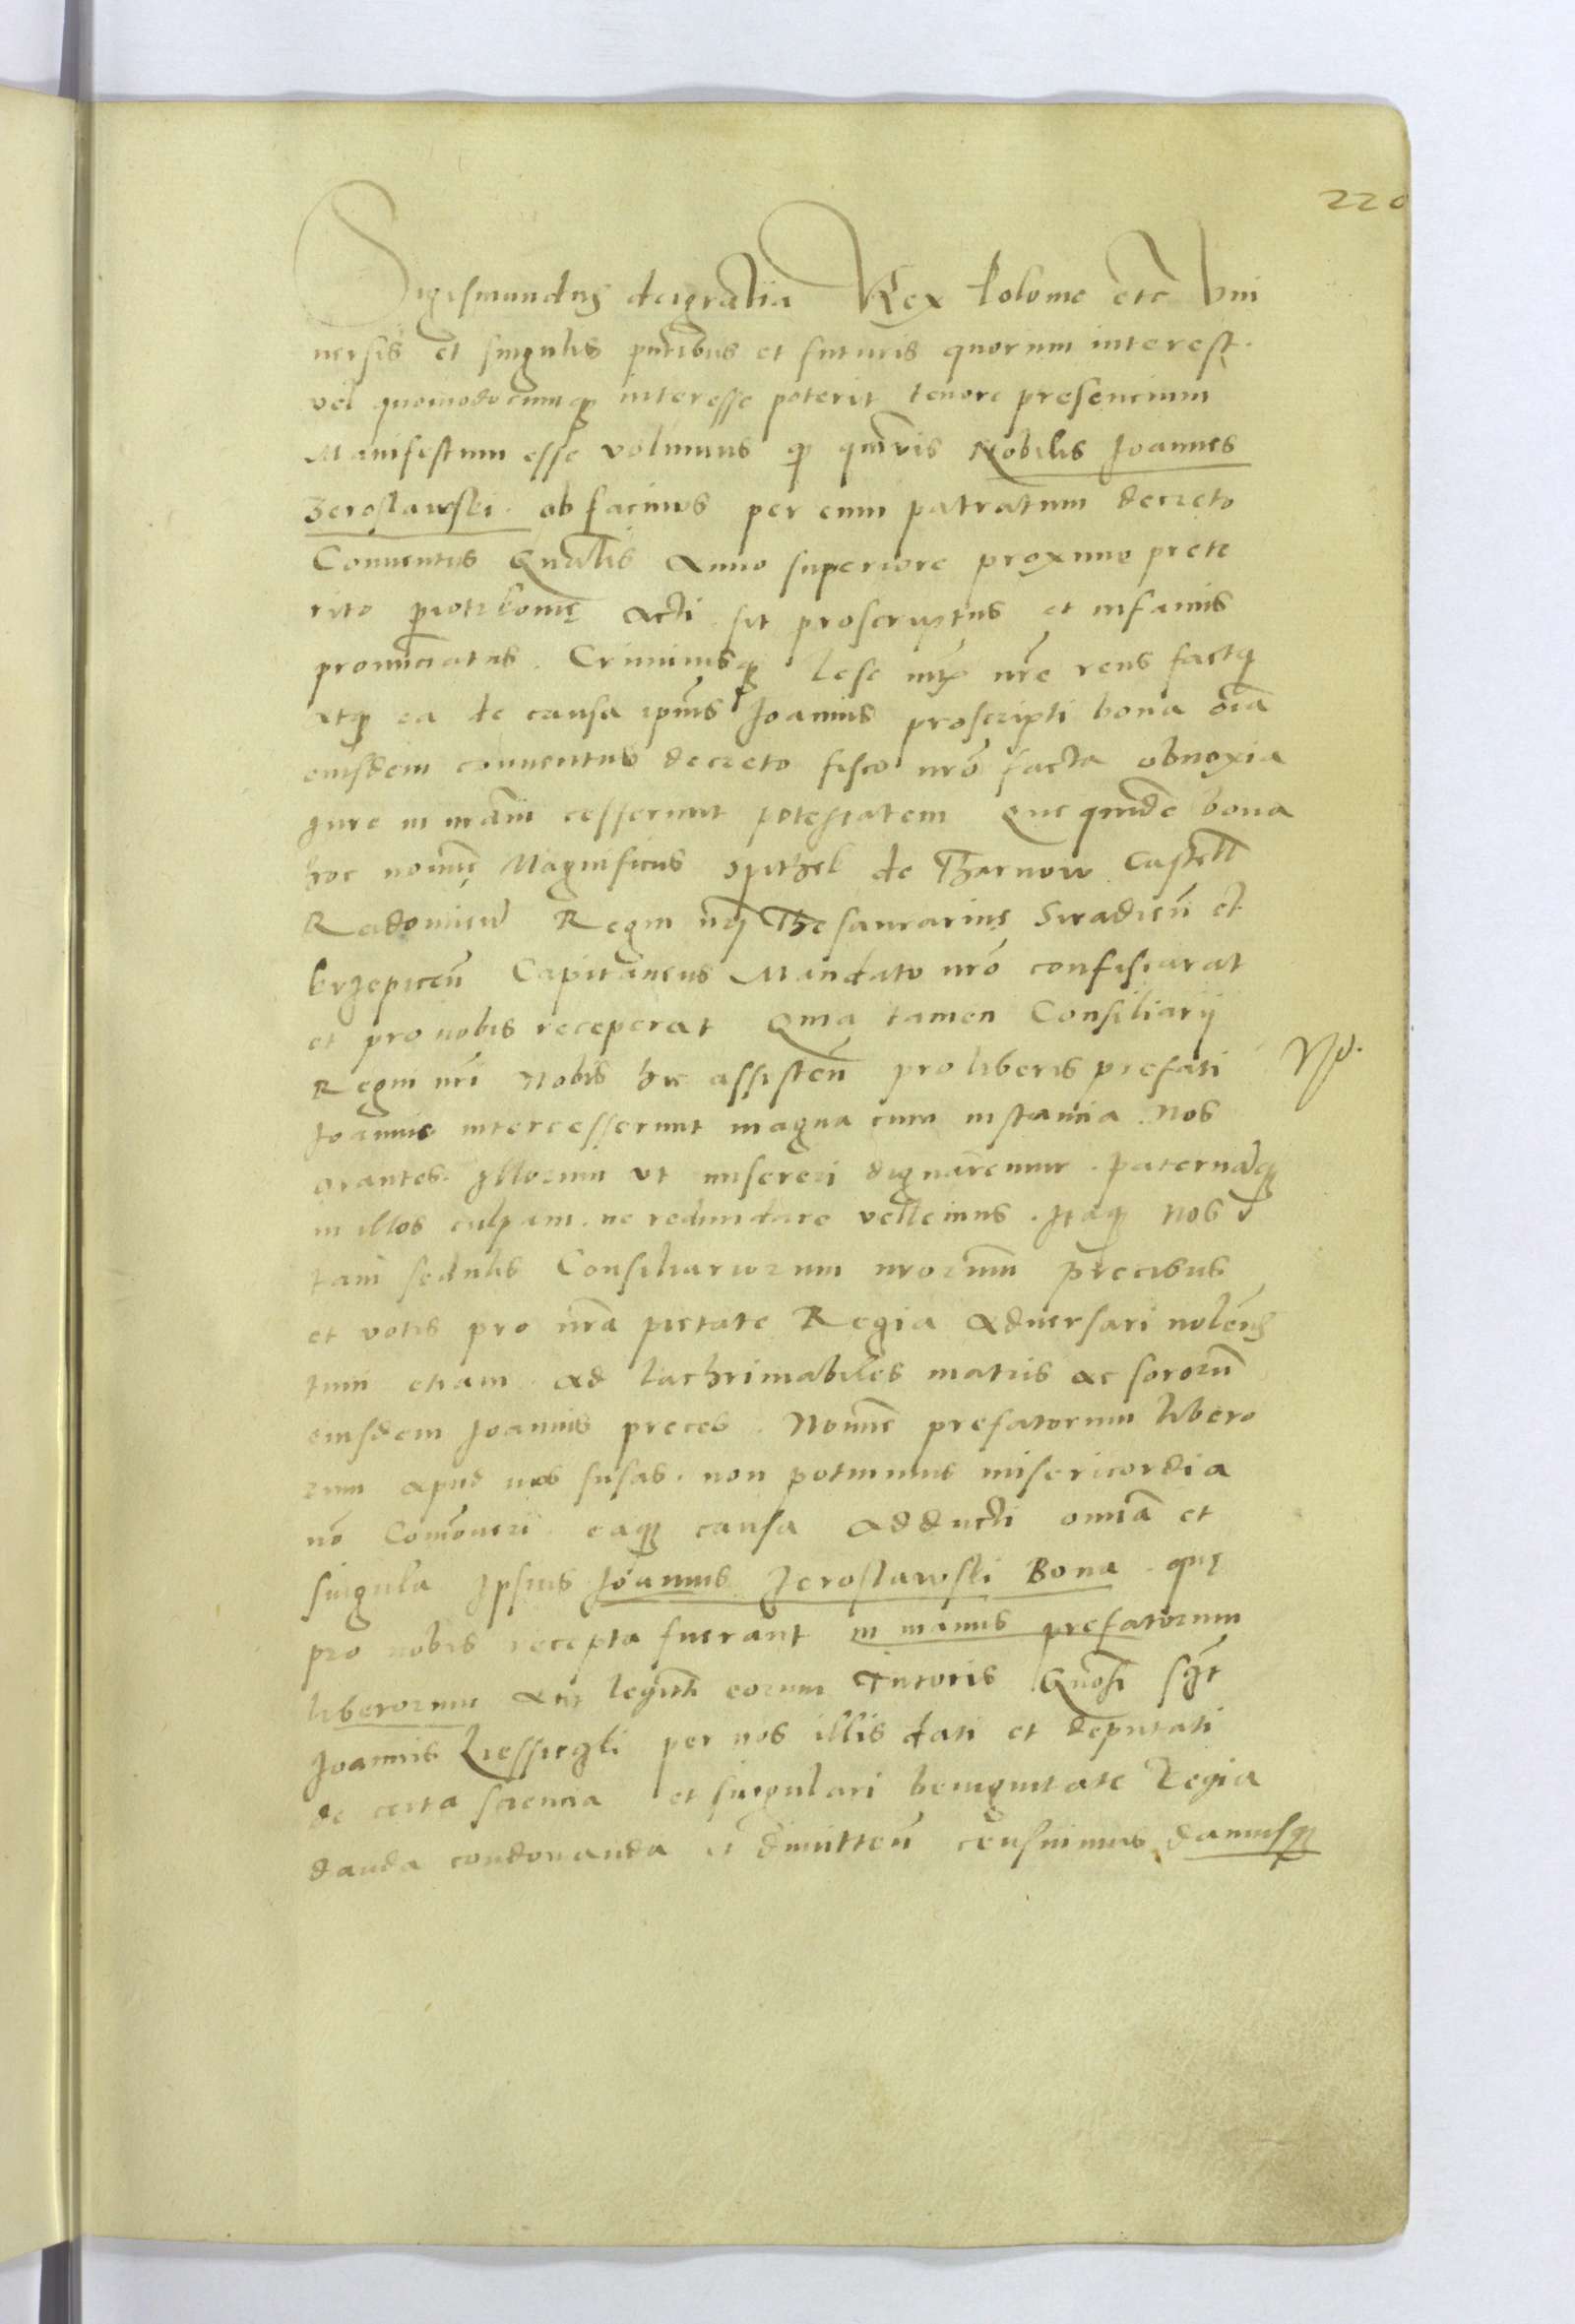 220
Sigismundus deigratia Rex Polonie etc̄ Vni
uersis et singulis pn̄tibus et futuris quorum interest.
vel quomodocumq₃ interesse poterit tenore presencium
Manifestum esse volumus q₃ quāvis Nobilis Joannes
Jeroslawski. ob facinus per eum patratum decreto
Conuentus Gn̄alis Anno superiore proximo prete
rito piotrkouię acti sit proscriptus et infamis
pronunciatus. Criminisq₃ lese mt̄is nr̄e reus factq₃
atq₃ ea de causa ipīus Joannis proscripti bona oīa
eiusdem conuentus decreto fisco nr̄o facta obnoxia
jure in nr̄am cesserunt potestatem Que quidē bona
hoc nomīe Magnificus Spithek de Tharnow Castell
Radomien̄ Regni nr̄j Thesaurarius Siradien̄ et
krzepicen̄ Capitaneus Mandato nr̄o confiscarat
et pro nobis receperat Quia tamen Consiliarij
Regni nr̄i Nobis hic assisten̄ pro liberis prefati
Joannis intercesserunt magna cum instantia. Nos
orantes. Illorum vt misereri dignaremur. paternāq₃
in illos culpam. ne redundare vellemus. Itaq₃ Nos
tam sedulis Consiliariorum nr̄orum precibus
et votis pro nr̄a pietate Regia Aduersari nolen̄s
tum etiam ad lachrimabiles matris ac sororū
eiusdem Joannis preces. Nomīe prefatorum libero
rum apud nos fusas. non potuimus misericordia
nō Com̄oueri eaq₃ causa Adducti omīa et
singula Ipsius Joannis Jeroslawski Bona. quę
pro nobis recepta fuerant in manus prefatorum
liberorum aut legitti eorum Tutoris Gn̄osi
Joannis per nos illis dati et deputati
de certa sciencia et singulari benignitate Regia
danda condonanda et dimitten̄ censuimus damusq₃